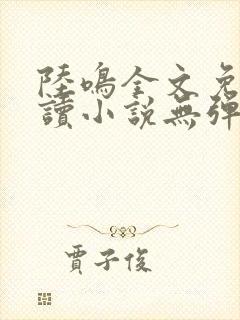 陸鳴全文免
讀小說無彈
賈子俊